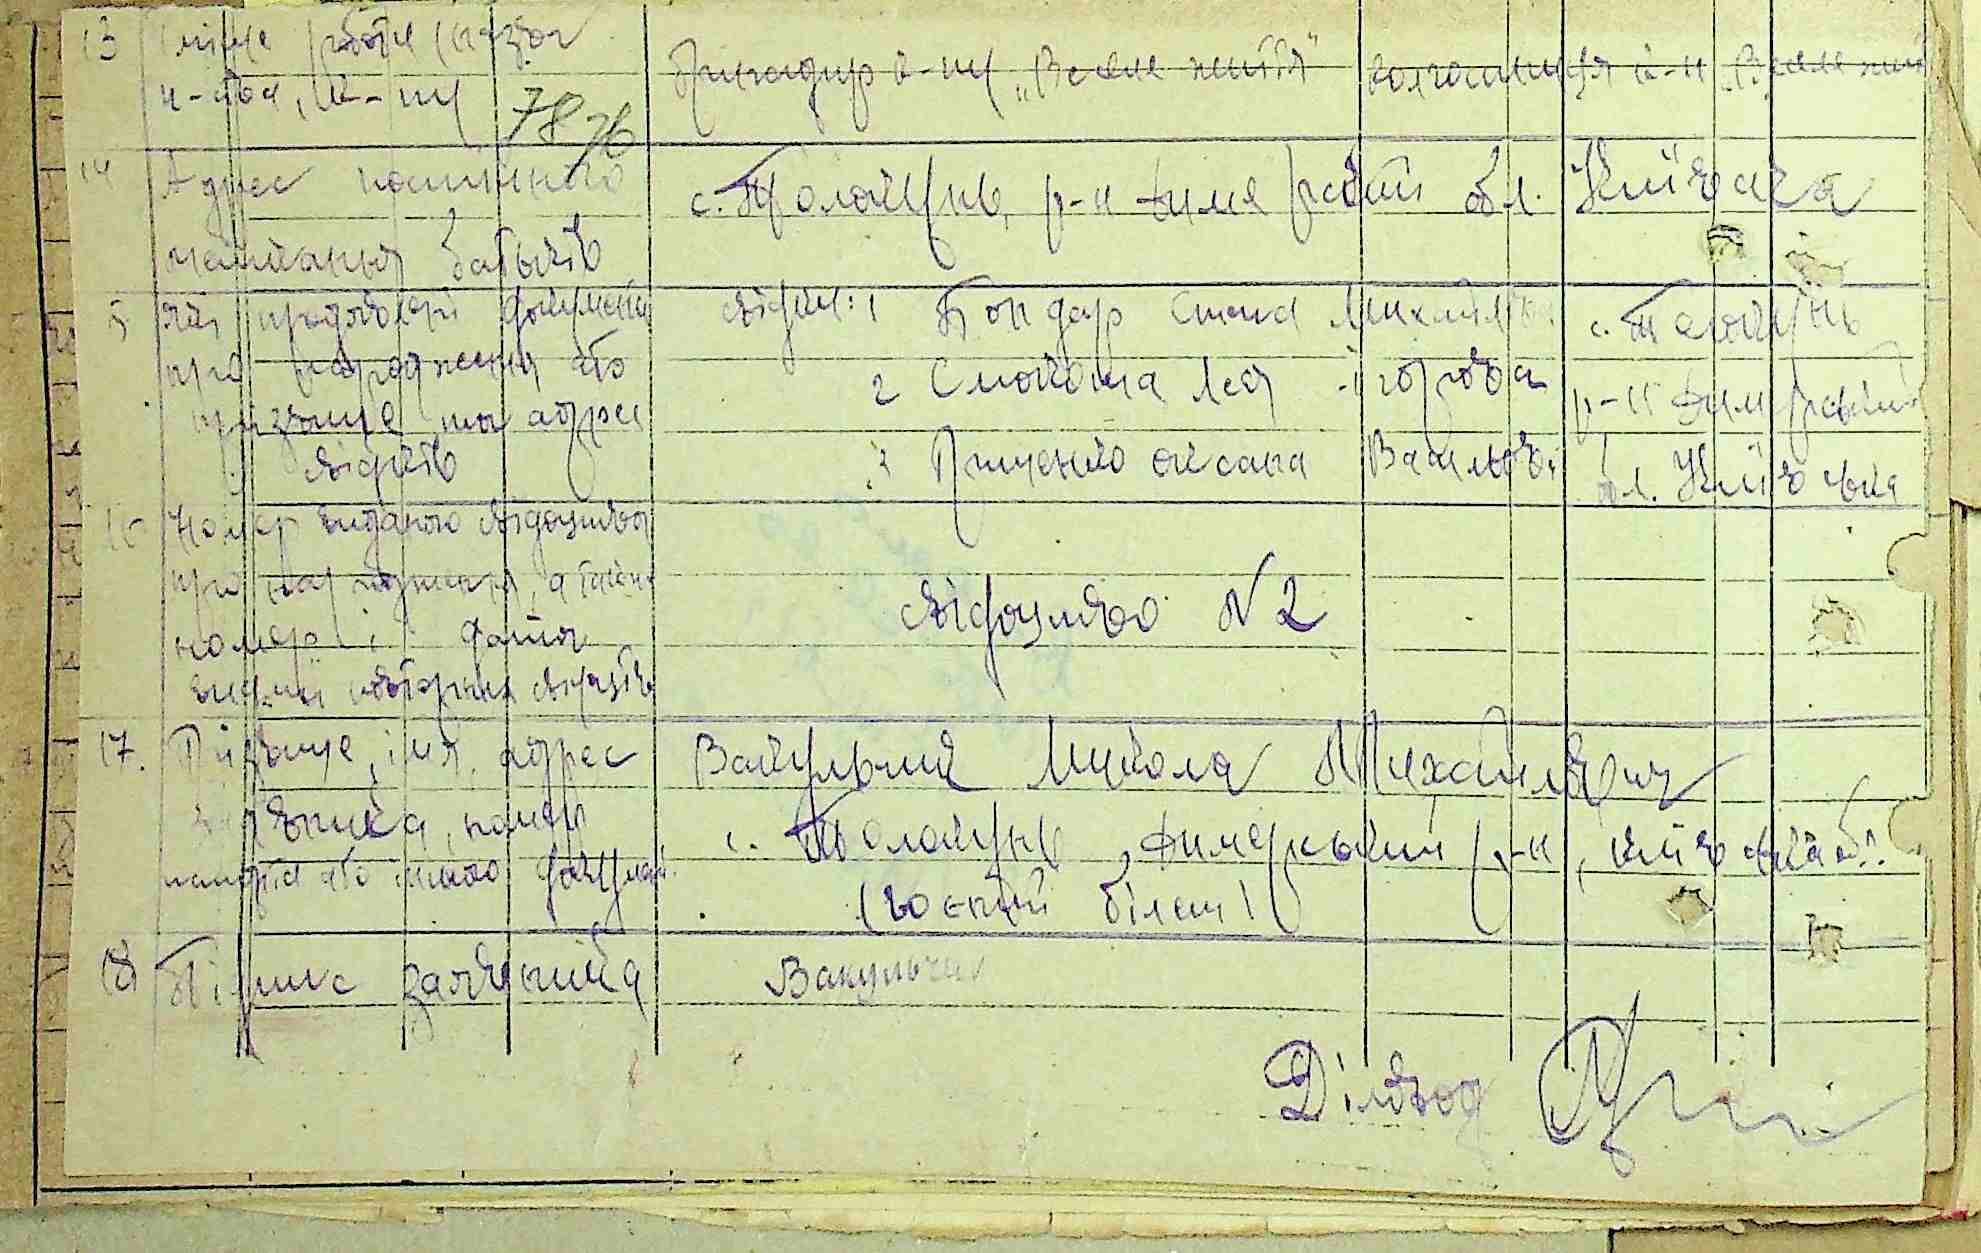 13 місце роботи (назва
к-тва, к-пу
7876
Бригадир к-пу „Веселе життя" колгоспниця к-п „Веселе жит
14 Адрес постійного
мешкання батьків
с. Толокунь, р-н Димерський обл. Київська
5 Які пред'явлені документи
про народження або
прізвище та адреси
свідків
свідки: 1 Бондар Михайлівна
2 Лея Ігорова
3 Оксана Васильєв.
с. Толокунь
р-н Димерський
обл. Київська
16 Номер виданого свідоцтва
про народження, а також
номер і дата
видачі повторних свідоцтв
свідоцтво № 2
17. Прізвище, імя, адрес
заявника, номер
паспорта або іншого документ.
Вакульчик Микола Михайлович
с. Толокунь, Димерський р-н, Київська об.
(воєний білет)
18 Підпис заявника
Вакульчик
Діловод